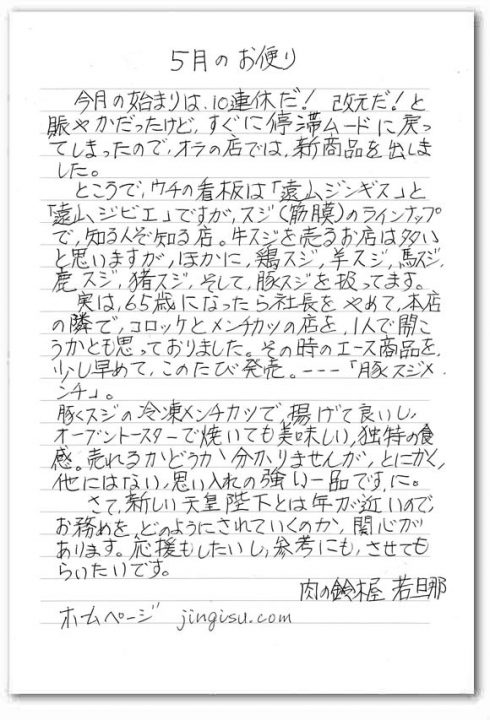 5月のお便り
今月の始まりは、10連休だ! 改元だ!と
賑やかだったけど、すぐに停滞ムードに戻っ
てしまったので、オラの店では、新商品を出しま
した。
ところで、ウチの看板は「遠山ジンギス」と
「遠山ジビエ」ですが、スジ(筋膜)のラインナップ
で、知る人ぞ知る店。牛スジを売るお店は多い
と思いますが、ほかに、鶏スジ、羊スジ、馬スジ、
鹿スジ、猪スジ、そして、豚スジを扱ってます。
実は、65歳になったら社長をやめて、本店
の隣で、コロッケとメンチカツの店を、1人で開こ
うかとも思っておりました。その時のエース商品を、
少し早めて、このたび発売。---「豚スジメ
ンチ」。
豚スジの冷凍メンチカツで、揚げて良いし、
オーブントースターで焼いても美味しい、独特の食
感。売れるかどうか分かりませんが、とにかく、
他にはない、思い入れの強い一品です、に。
さて、新しい天皇陛下とは年が近いので、
お務めを、どのようにされていくのか、関心が
あります。応援もしたいし、参考にも、させても
らいたいです。
肉の鈴木屋 若旦那
ホームページ jingisu.com